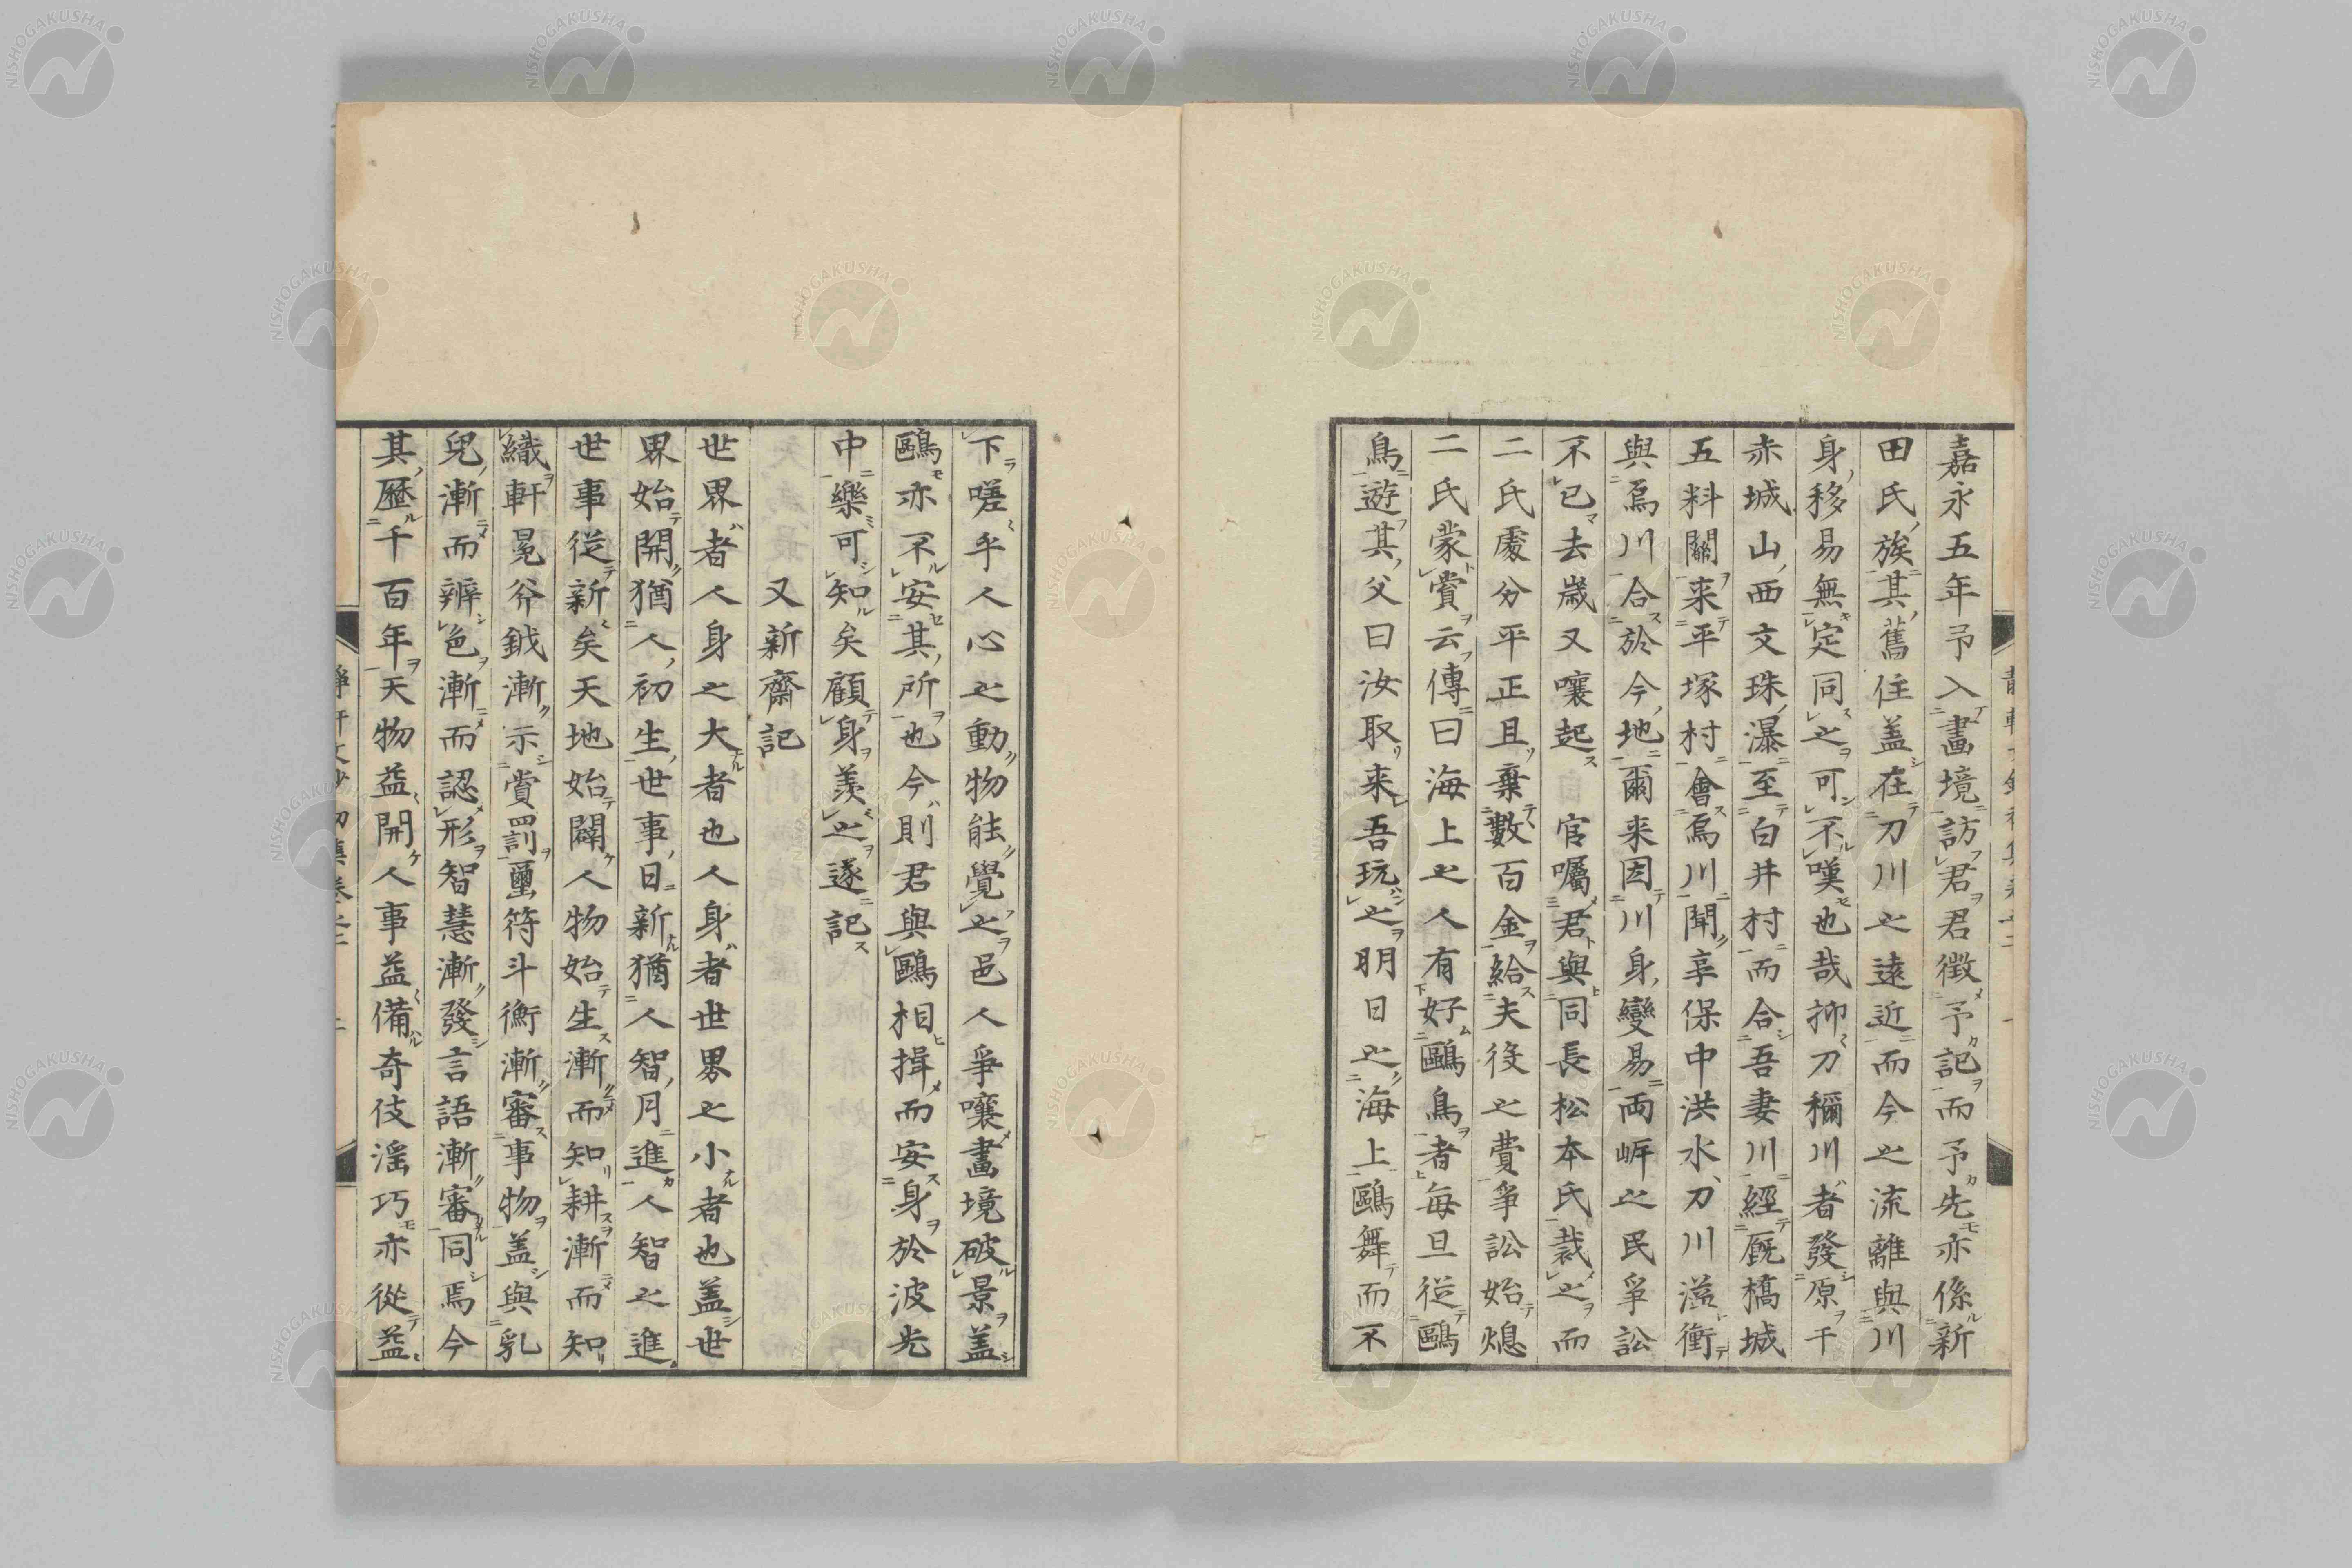 嘉永五年予入畵境訪君君徴予記而予先亦係新
田氏族其舊住盖在刀川之遠近而今之流離與川
身移易無定同之可不嘆也哉抑刀禰川者發原于
赤城山西文珠瀑至白井村而合吾妻川經厩橋城
五料關来平塚村會烏川聞享保中洪水刀川溢衝
與烏川合於今地爾来因川身變易両岸之民爭訟
不已去歳又嚷起官囑君與同長松本氏裁之而
二氏處分平正且棄數百金給夫役之費爭訟始熄
二氏蒙賞云傳曰海上之人有好鷗鳥者毎旦従鷗
鳥遊其父曰汝取来吾玩之明日之海上鷗舞而不
下嗟乎人心之動物能覺之邑人爭嚷畵境破景盖
鷗亦不安其所也今則君與鷗相揖而安身於波光
中樂可知矣顧身羨之遂記
又新齋記
世界者人身之大者也人身者世界之小者也盖世
界始開猶人初生世事日新猶人智月進人智之進
世事従新矣天地始闢人物始生漸而知耕漸而知
織軒冕斧鉞漸示賞罰璽符斗衡漸審事物盖與乳
兒漸而辨色漸而認形智慧漸發言語漸審同焉今
其歴千百年天物益開人事益備奇伎淫巧亦從益